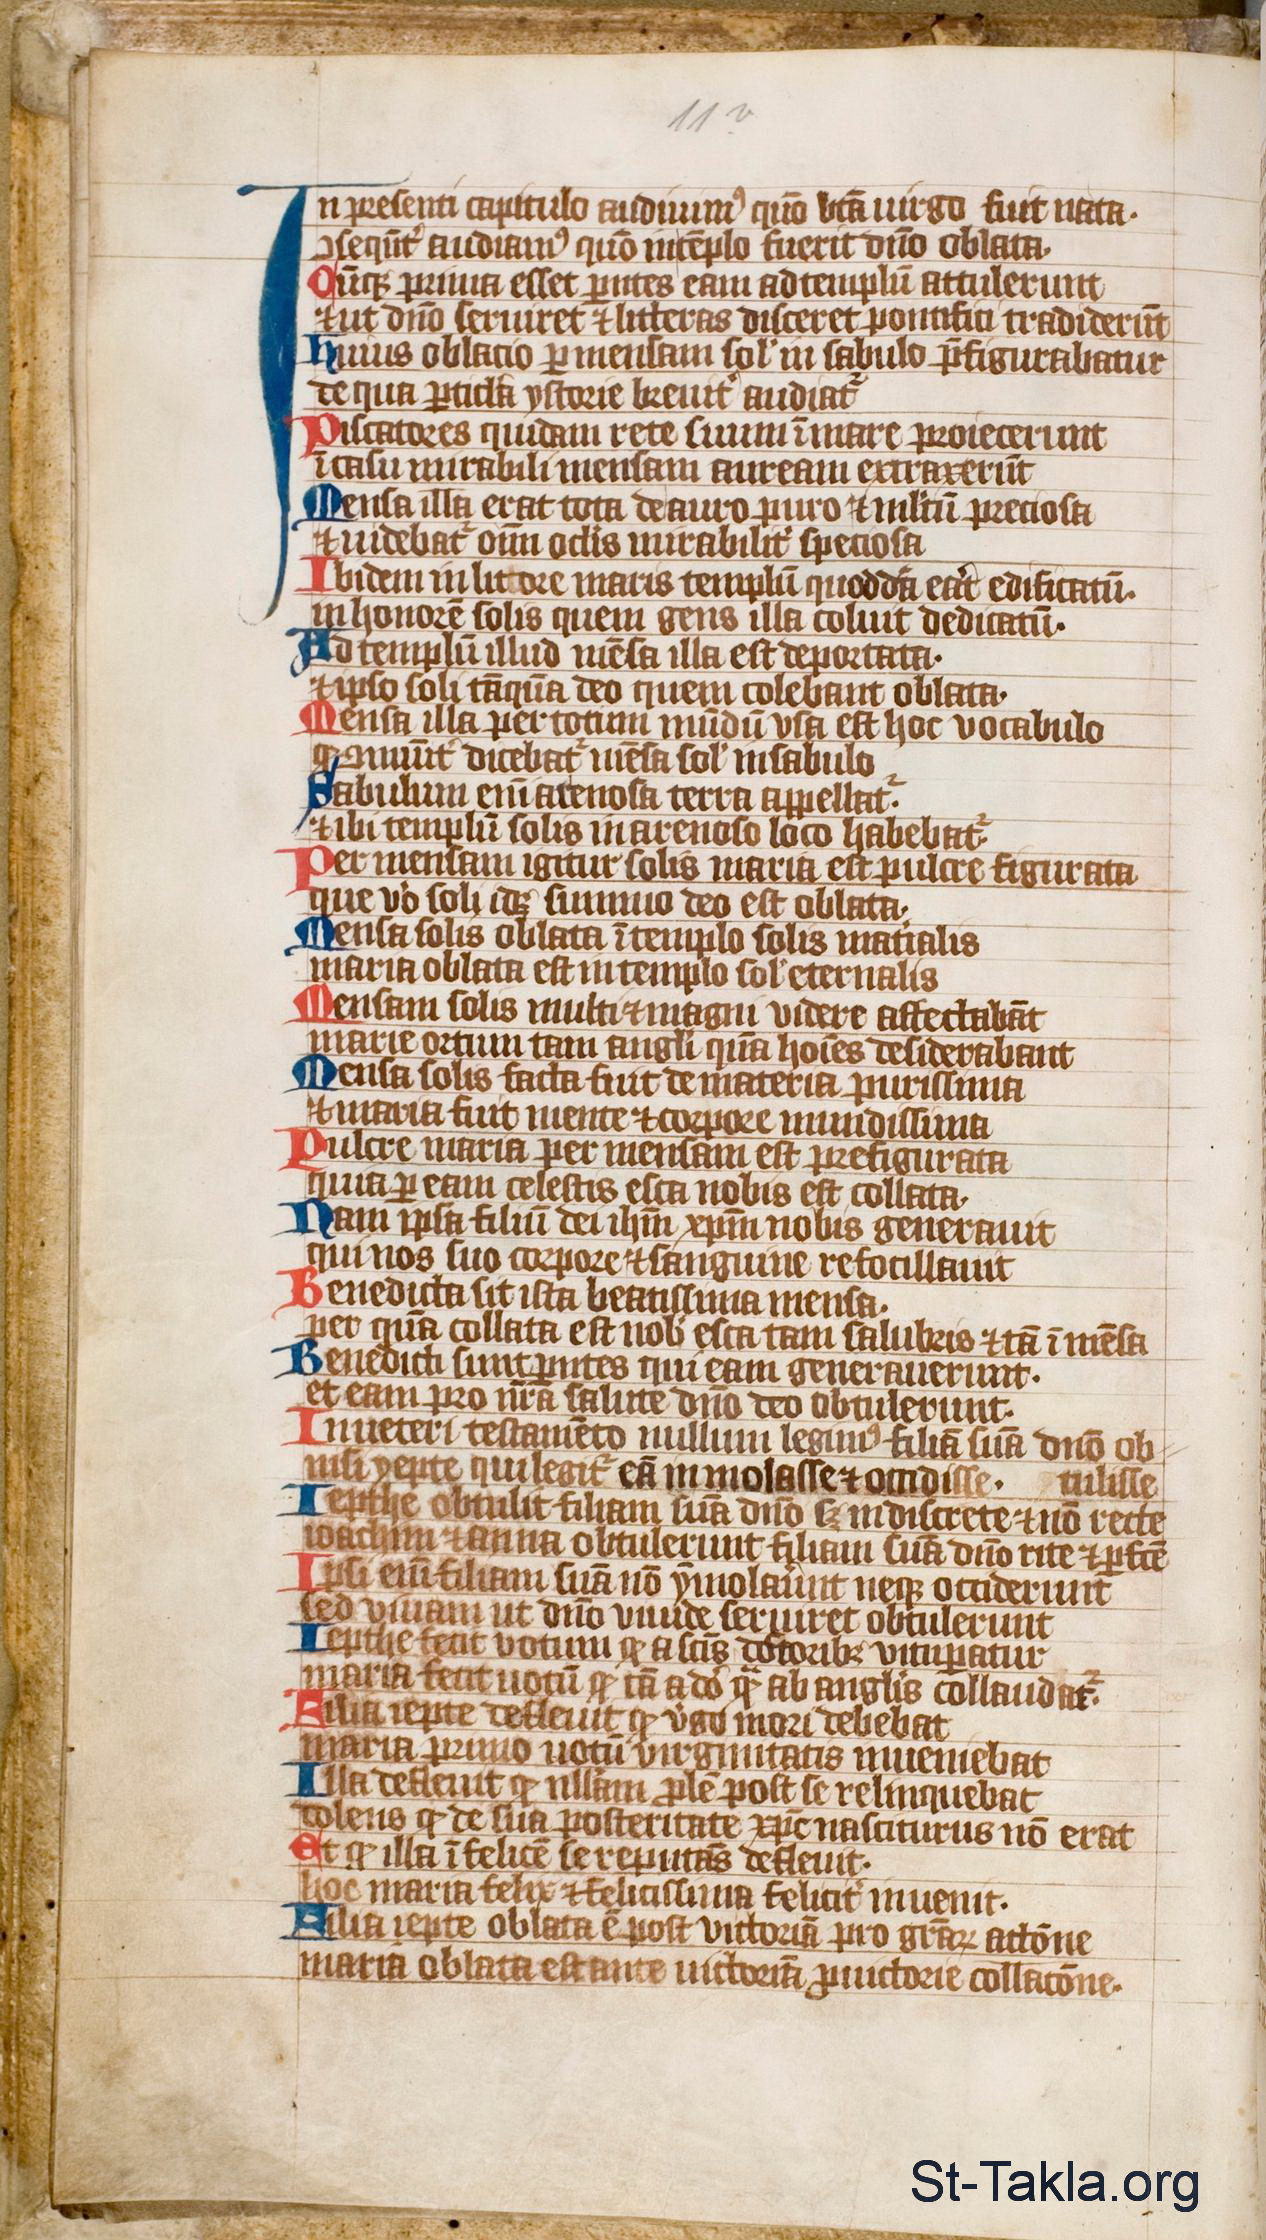 11 v
In presenti capitulo audiuimꝰ quō btā uirgo fuit nata·
Ↄsequt̄ʳ audiamꝰ quō intēplo fuerit dn̄o oblata·
Cūqꝫ prima esset p̲ntes eam ad templū attulerunt
⁊ut dn̄o seruiret ⁊litteras disceret pontifici tradiderūt
Huius oblacio p̲ mensam sol' in sabulo p̄figurabatur
de qua p̲ticlā ystorie breuit' audiat᷑
Piscatores quidam rete suum ī mare proiecerunt
⁊ casu mirabili mensam auream extraxerūt
Mensa illa erat tota de auro puro ⁊ mltū preciosa
⁊uidebat᷑ oīm oclis mirabilit' speciosa
Ibidem in littore maris templū quoddā erat edificatū·
in honorē solis quem gens illa coluit dedicatū·
Ad templū illud mēsa illa est deportata·
⁊ipso soli tāquā deo quem colebant oblata·
Mensa illa per totum mūdū vsa est hoc vocabulo
qꝫ ↄmunit' dicebat᷑ mēsa sol' insabulo
Sabulum enī arenosa terra appellat᷑·
⁊ibi templū solis in arenoso loco habebat᷑
Per mensam igitur solis maria est pulcre figurata
que vo soli idꝫ summo deo est oblata·
Mensa solis oblata ī templo solis mat'ialis
maria oblata est in templo sol' eternalis
Mensam solis multi ⁊magni videre affectabāt
marie ortum tam angli quā hoīes desiderabant
Mensa solis facta fuit de materia purissima
⁊maria fuit mente ⁊corpore mundissima
Pulcre maria per mensam est prefigurata
quia p̲ eam celestis esca nobis est collata·
Nam ipsa filiū dei ihm̄ xpm̄ nobis generauit
qui nos suo corpore ⁊sanguine refocillauit
Benedicta sit ista beatissima mensa·
per quā collata est nob' esca tam salubris ⁊tā īmēsa
Benedicti sunt p̲ntes qui eam generauerunt·
et eam pro nr̄a salute dn̄o deo obtulerunt·
In ueteri testamēto nullum legimꝰ filiā suā dn̄o ob
nisi yepte qui legit᷑ eā inmolasse ⁊ occidisse· tulisse
Iepthe obtulit filiam suā dn̄o sꝫ indiscrete ⁊nō recte
ioachim ⁊anna obtulerunt filiam suā dn̄o rite ⁊p̲fcē
Ipsi enī filiam suā nō ymolauūt neqꝫ occiderunt
sed viuam ut dn̄o viuide seruiret obtulerunt
Iepthe fecit votum qꝫ a scīs doctoribꝫ vitup̲atur
maria fecit uotū qꝫ tā a do qā ab anglis collaudat᷑·
Filia iepte defleuit qꝫ v'go mori debebat
maria primo uotū virginitatis inueniebat
Illa defleuit qꝫ nllam plē post se relinquebat
dolens qꝫ de sua posteritate xpc̄ nasciturus nō erat
Et qꝫ illa īfelicē se reputās defleuit·
hoc maria felix ⁊felicissima felicit' inuenit·
Filia iepte oblata ē post victoriā pro grāꝝ actōne
maria oblata est ante uictoriā p uictorie collatōne·
St-Takla.org